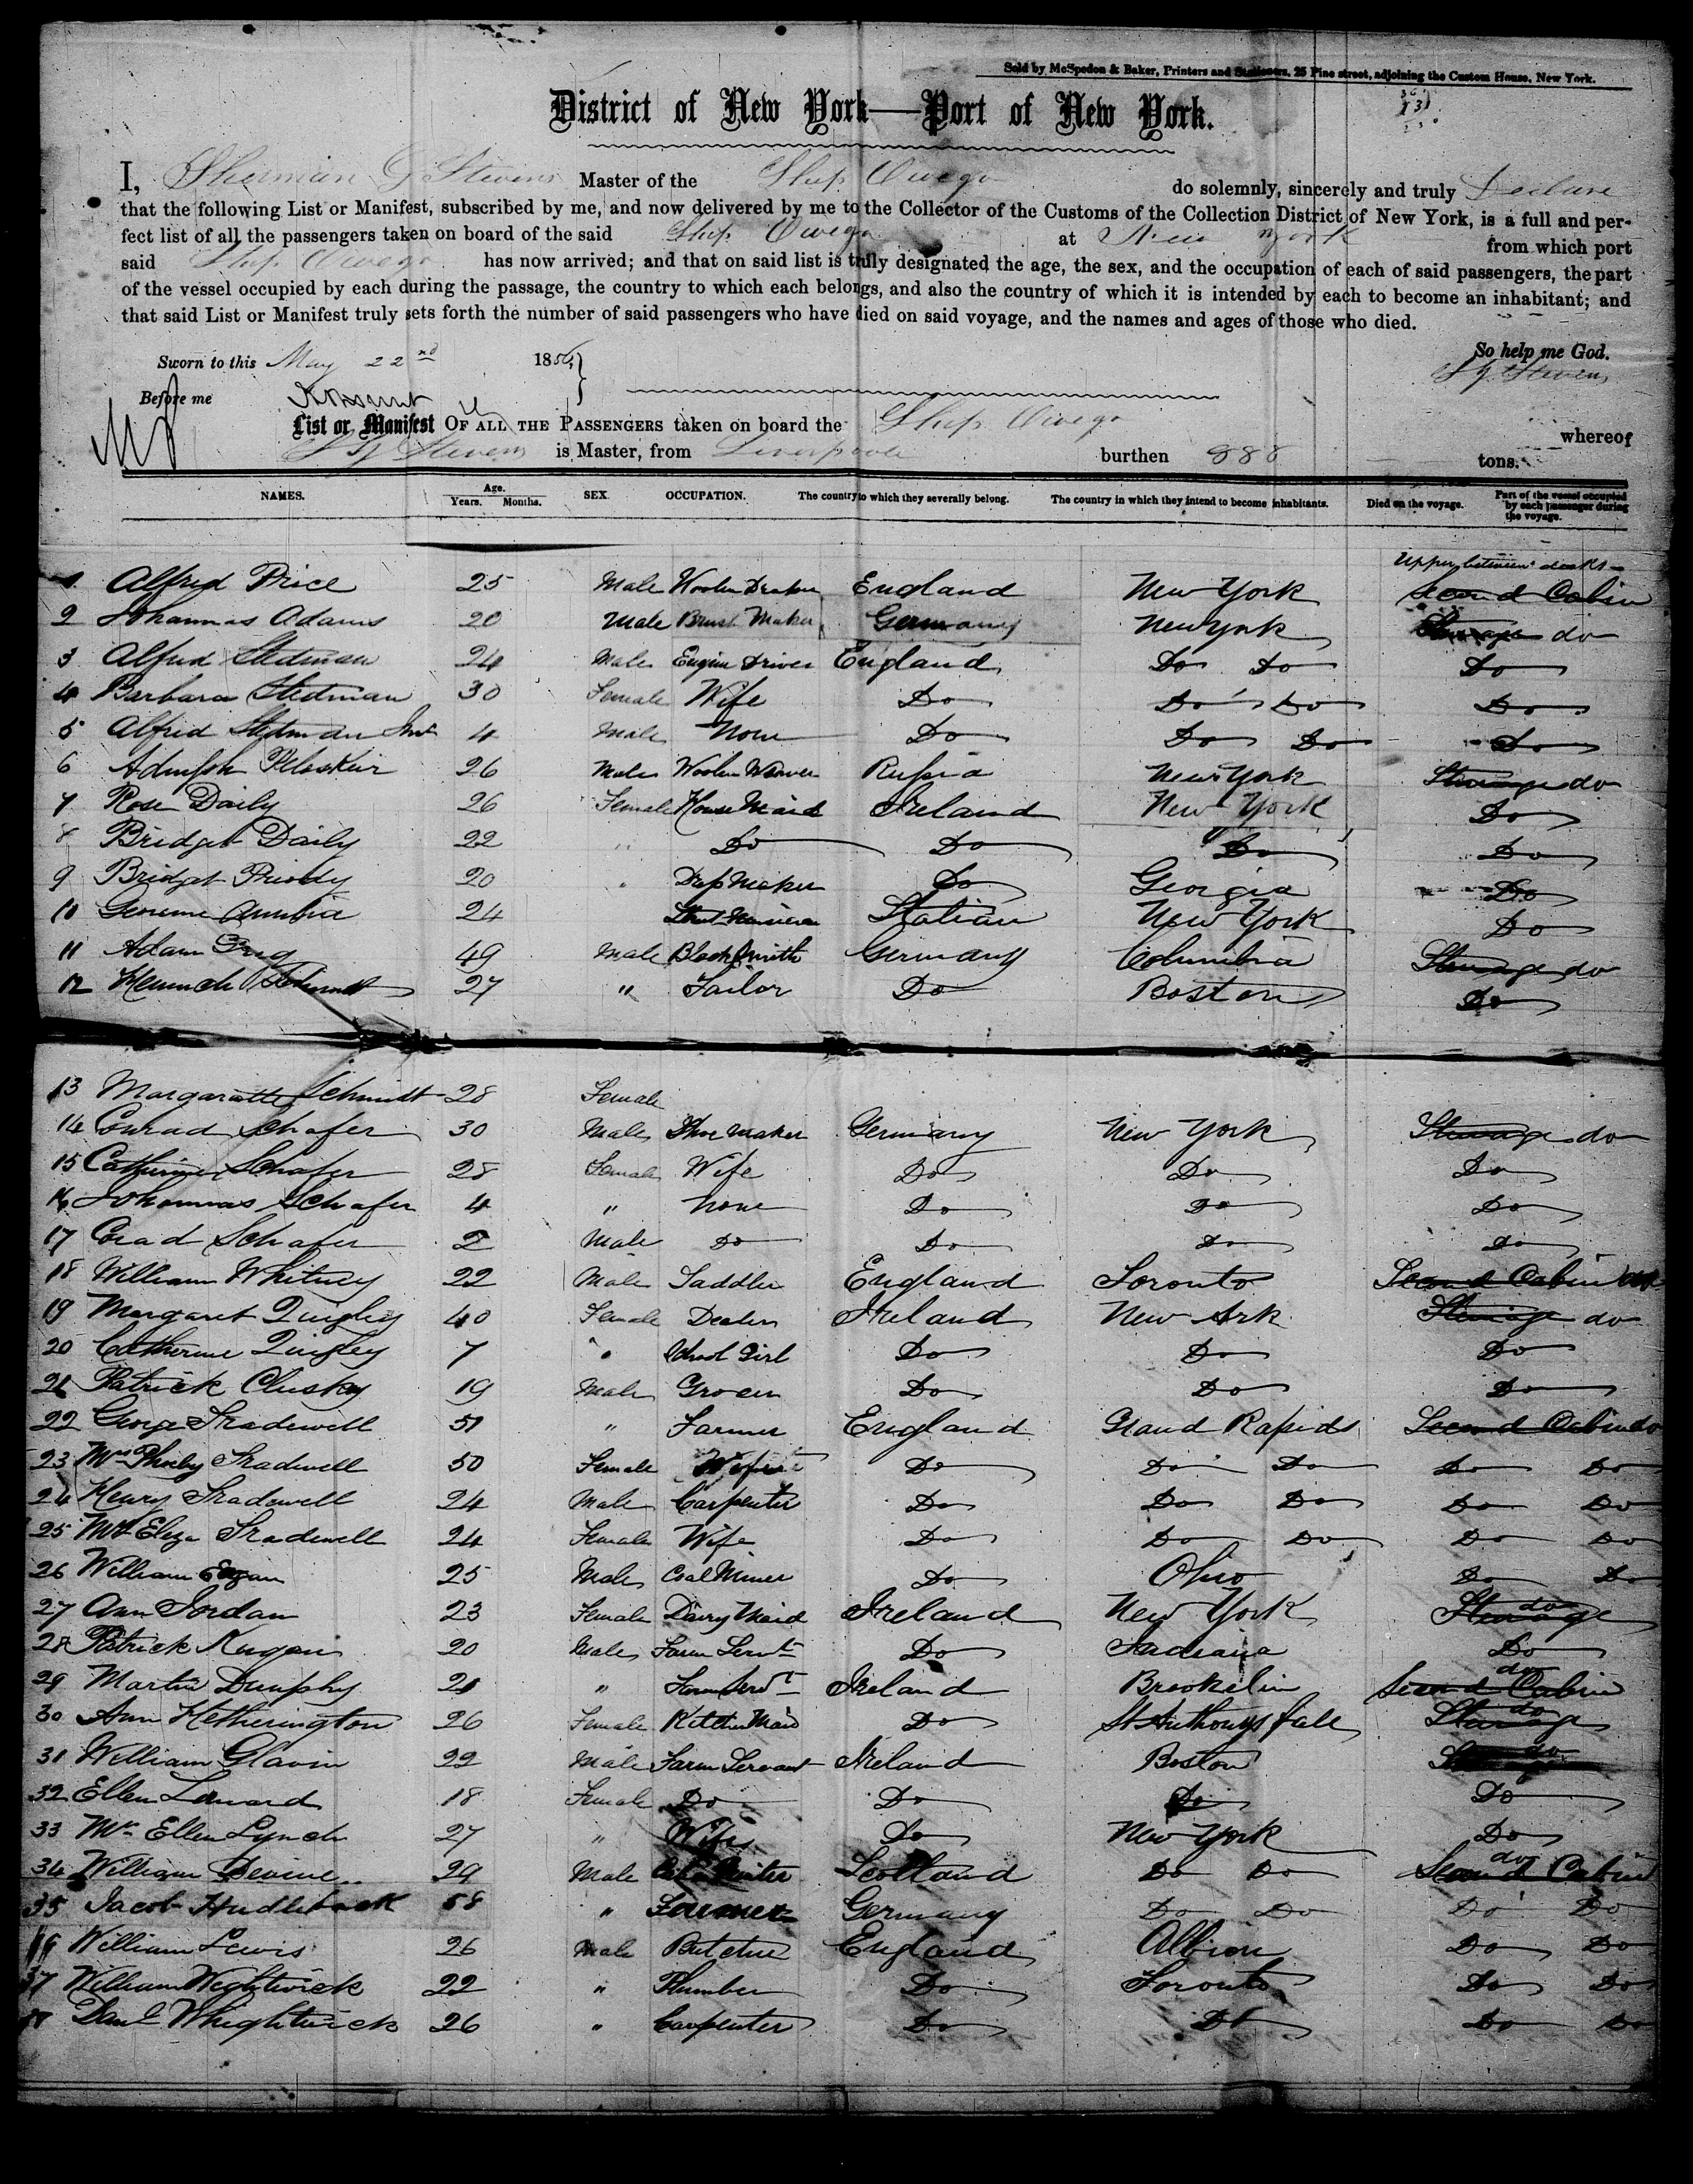 Sold by McSpedon & Baker, Printers and Stationers, 25 Pine street, adjoining the Custom House, New York.
District of New York—Port of New York.
I, Sherman G Stevens Master of the Ship Owego do solemnly, sincerely and truly Declare
that the following List or Manifest, subscribed by me, and now delivered by me to the Collector of the Customs of the Collection District of New York, is a full and per-
fect list of all the passengers taken on board of the said Ship Owego at New York from which port
said Ship Owego has now arrived; and that on said list is truly designated the age, the sex, and the occupation of each of said passengers, the part
of the vessel occupied by each during the passage, the country to which each belongs, and also the country of which it is intended by each to become an inhabitant; and
that said List or Manifest truly sets forth the number of said passengers who have died on said voyage, and the names and ages of those who died.
Sworn to this May 22nd 1856 So help me God.
Before me S G Stevens
List or Manifest OF ALL THE PASSENGERS taken on board the Ship Owego whereof
S G Stevens is Master, from Liverpool burthen 888 tons.
NAMES. Age. Years. Months. SEX. OCCUPATION. The country to which they severally belong. The country in which they intend to become inhabitants. Died on the voyage. Part of the vessel occupied by each passenger during the voyage.
Upper between decks
1 Alfred Price 25 Male Woolen Draper England New York Second Cabin
2 Johannas Adams 20 Male Brush Maker Germany New York Steerage do
3 Alfred Stedman 24 Male Engine Driver England Do Do Do
4 Barbara Stedman 30 Female Wife Do Do Do Do
5 Alfred Stedman Jnr 4 Male None Do Do Do Do
6 26 Male Woolen Weaver Rufsia New York Steerage do
7 Rose Daily 26 Female House Maid Ireland New York Do
8 Bridget Daily 22 " Do Do Do Do
9 Bridget 20 " Drefs Maker Do Georgia Do
10 24 Italian New York Do
11 Adam 49 Male Black Smith Germany Columbia Steerage do
12 Heinrich Schmidt 27 " Tailor Do Boston Do
13 Margaratte Schmidt 28 Female
14 Conrad Schafer 30 Male Shoe Maker Germany New York Steerage do
15 Catherine Schafer 28 Female Wife Do Do Do
16 Johannas Schafer 4 " None Do Do Do
17 Corad Schafer 2 Male Do Do Do Do
18 William Whitney 22 Male Saddler England Toronto Second Cabin do
19 Margaret Quigley 40 Female Dealer Ireland New Ark Steerage do
20 Catherine Quigley 7 " School Girl Do Do Do
21 Patrick Clusky 19 Male Grocer Do Do Do
22 George Tradewell 51 " Farmer England Grand Rapids Second Cabin do
23 Mrs Pheby Tradewell 50 Female Wife Do Do Do Do Do
24 Henry Tradewell 24 Male Carpenter Do Do Do Do Do
25 Mrs Eliza Tradewell 24 Female Wife Do Do Do Do Do
26 William Eagan 25 Male Coal Miner Do Ohio Do Do
27 Ann Jordan 23 Female Dairy Maid Ireland New York Steerage do
28 Patrick 20 Male Farm Servt Do Indiana Do
29 Martin Dunphy 21 " Farm Servt Ireland Brookelin Second Cabin do
30 Ann Hetherington 26 Female Kitchen Maid Do St Anthonys fall Steerage do
31 William Glavin 22 Male Farm Servant Ireland Boston Steerage do
32 Ellen Lenard 18 Female Do Do Do Do
33 Mrs Ellen Lynch 27 " Wife Do New York Do
34 William Devine 29 Male Scotland Do Do Second Cabin do
35 Jacob Hudleback 58 " Farmer Germany Do Do Do Do
36 William Lewis 26 Male Butcher England Albion Do Do
37 William Wightwick 22 " Plumber Do Toronto Do Do
38 Danl Whightwick 26 " Carpenter Do Do Do Do